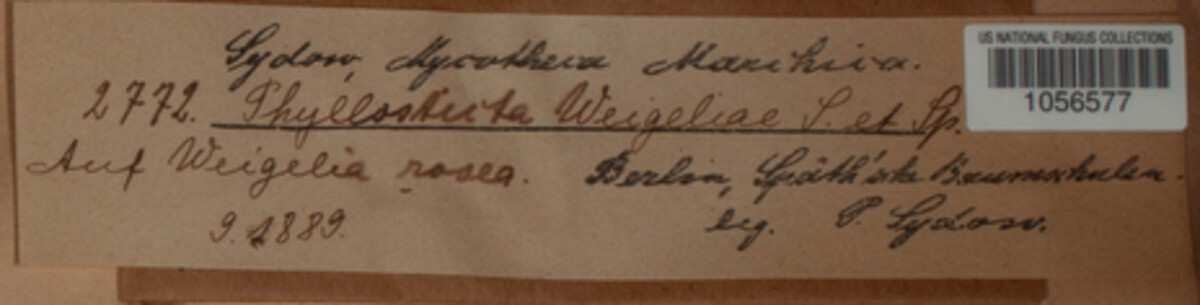 Sydow, Mycotheca Marchica.
US NATIONAL FUNGUS COLLECTIONS
1056577
2772. Phyllosticta Weigeliae S. et Sp.
Auf Weigelia rosea. Berlin, Späth'sche Baumschulen.
9. 1889. leg. P. Sydow.